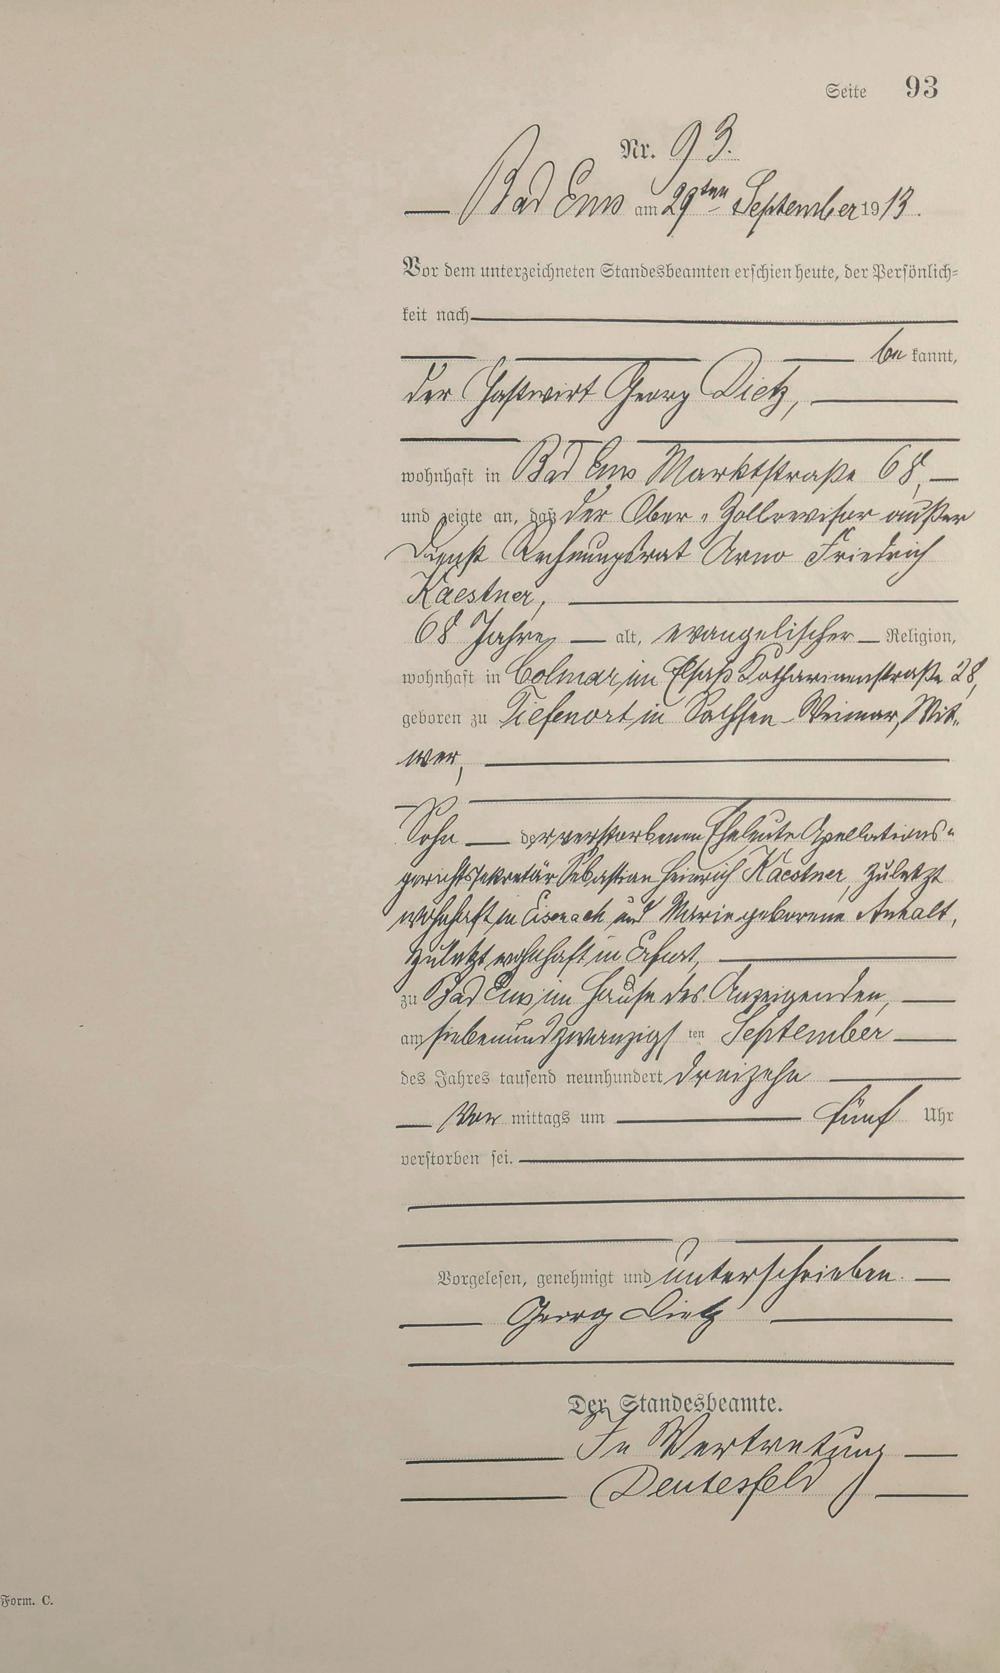 Seite 93
Nr. 93.
Bad Ems am 29ten September 1913.
Vor dem unterzeichneten Standesbeamten erschien heute, der Persönlich=
keit nach
be kannt,
der Gastwirt Georg Dietz,
wohnhaft in Bad Ems Marktstraße 68,
und zeigte an, daß der Ober-Zollrevisor außer
Dienst Rechnungsrat Arno Friedrich
Kaestner,
68 Jahre alt, evangelischer Religion,
wohnhaft in Colmar im Elsaß Katharinenstraße 28,
geboren zu Tiefenort in Sachsen-Weimar, Wit-
wer,
Sohn der verstorbenen Eheleute Apellations-
gerichtssekretär Sebastian Heinrich Kaestner, zuletzt
wohnhaft in Eisenach und Marie geborene Anhalt,
zuletzt wohnhaft in Erfurt,
zu Bad Ems im Hause des Anzeigenden,
am siebenundzwanzigsten September
des Jahres tausend neunhundert dreizehn
Vor mittags um fünf Uhr
verstorben sei.
Vorgelesen, genehmigt und unterschrieben.
Georg Dietz
Der Standesbeamte.
In Vertretung
Deutesfeld
Form. C.